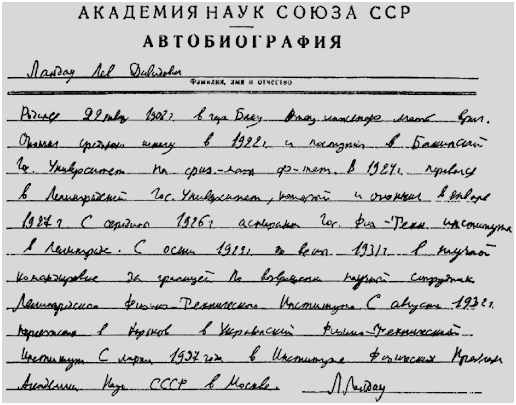 АКАДЕМИЯ НАУК СОЮЗА ССР
АВТОБИОГРАФИЯ
Ландау Лев Давидович
Фамилия, имя и отчество
Родился 22 янв 1908 г. в гор Баку Отец инженер мать врач.
Окончил среднюю школу в 1922 г. и поступил в Бакинский
Гос. Университет на физ.-мат. В 1924 г. перевелся
в Ленинградский Гос. Университет, который и окончил в январе
1927 г. С середины 1926 г аспирант Гос. Физ-Техн. института
в Ленинграде. С осени 1929 г. до весны 1931 г. в научной
командировке за границей По возвращении научный сотрудник
Ленинградского Физико-Технического Института С августа 1932 г.
в Харьков в Украинский Физико-Технический
Институт С марта 1937 года в Институте Физических Проблем
Академии Наук СССР в Москве. Л Ландау